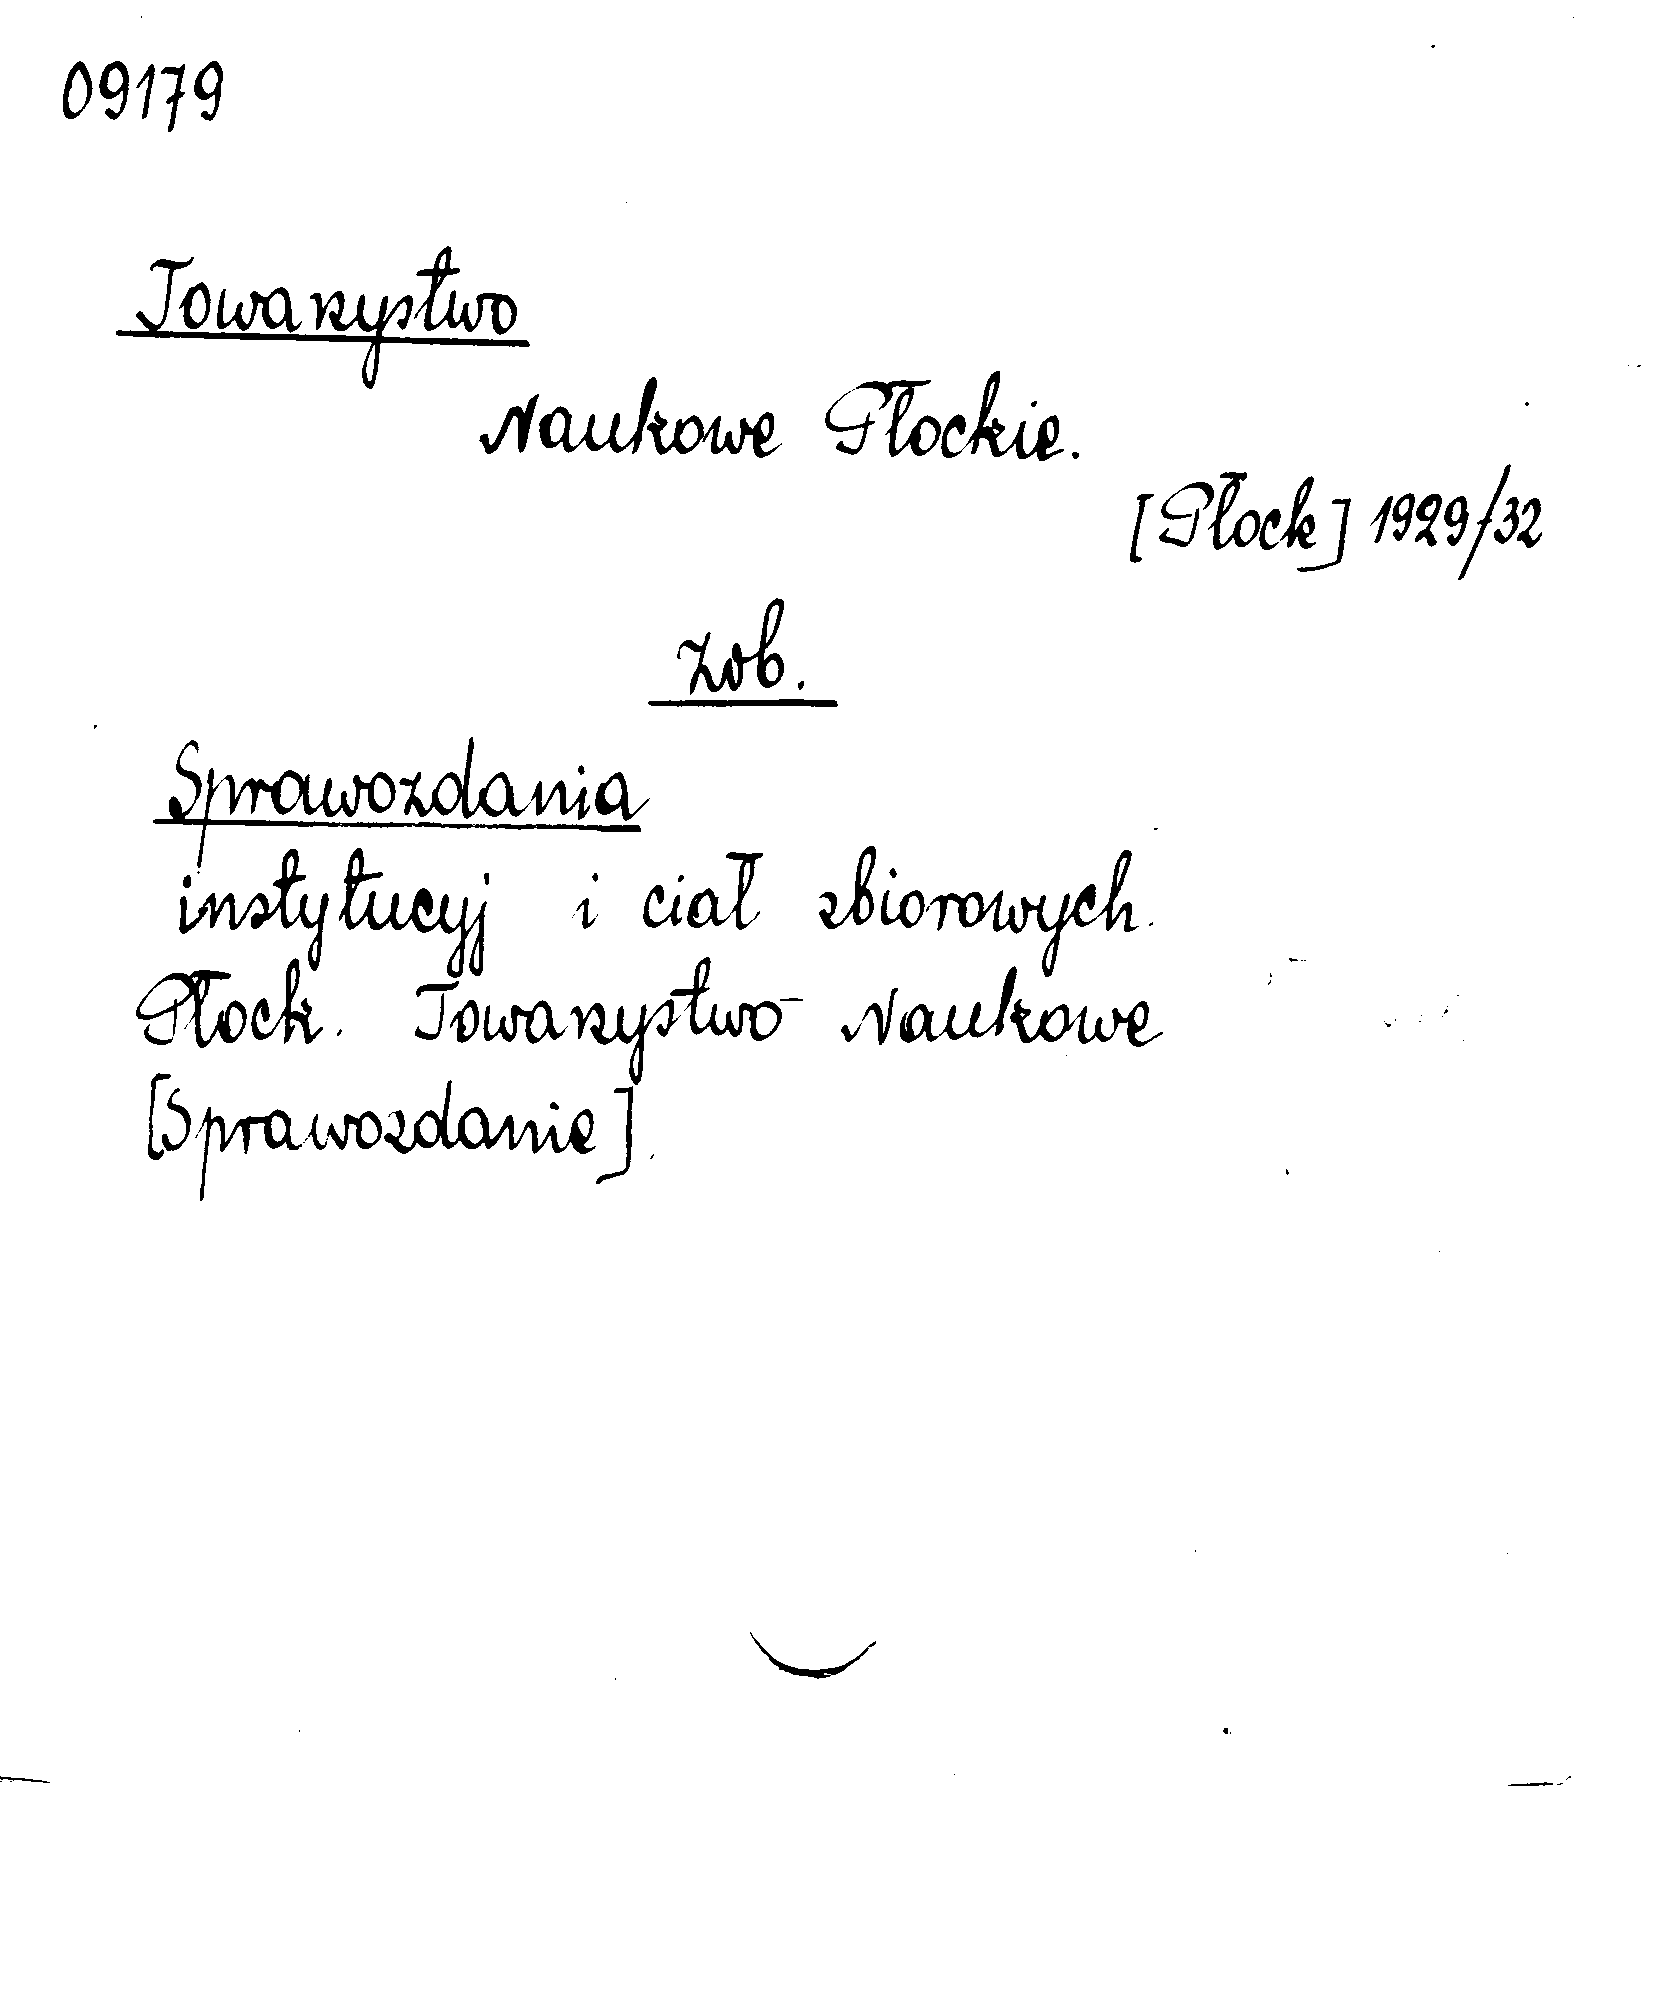 09179
Towarzystwo
Naukowe Płockie.
[Płock] 1929/32
zob.
Sprawozdania
instytucyj i ciał zbiorowych.
Płock. Towarzystwo Naukowe
[Sprawozdanie].